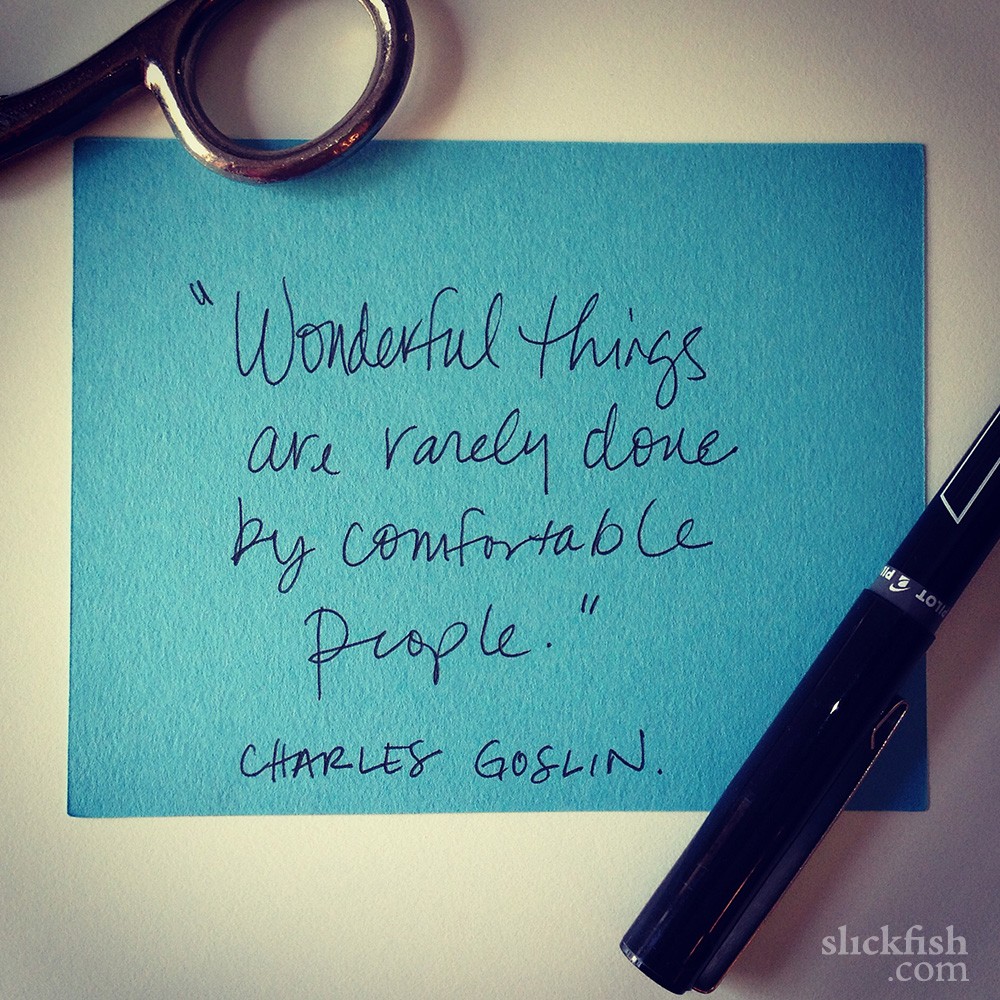 "Wonderful things
are rarely done
by comfortable
people."
CHARLES GOSLIN.
PILOT
slickfish
.com